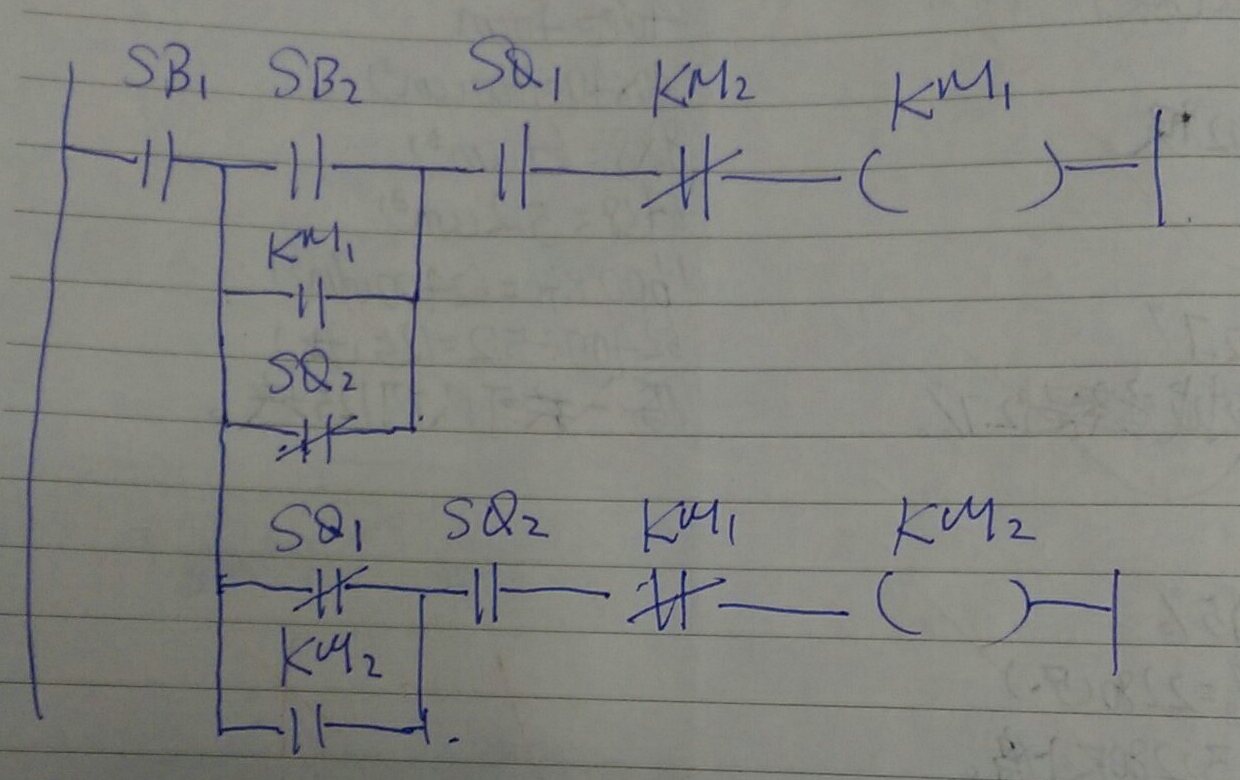 SB₁ SB₂ SQ₁ KM₂ KM₁
KM₁
SQ₂
SQ₁ SQ₂ KM₁ KM₂
KM₂